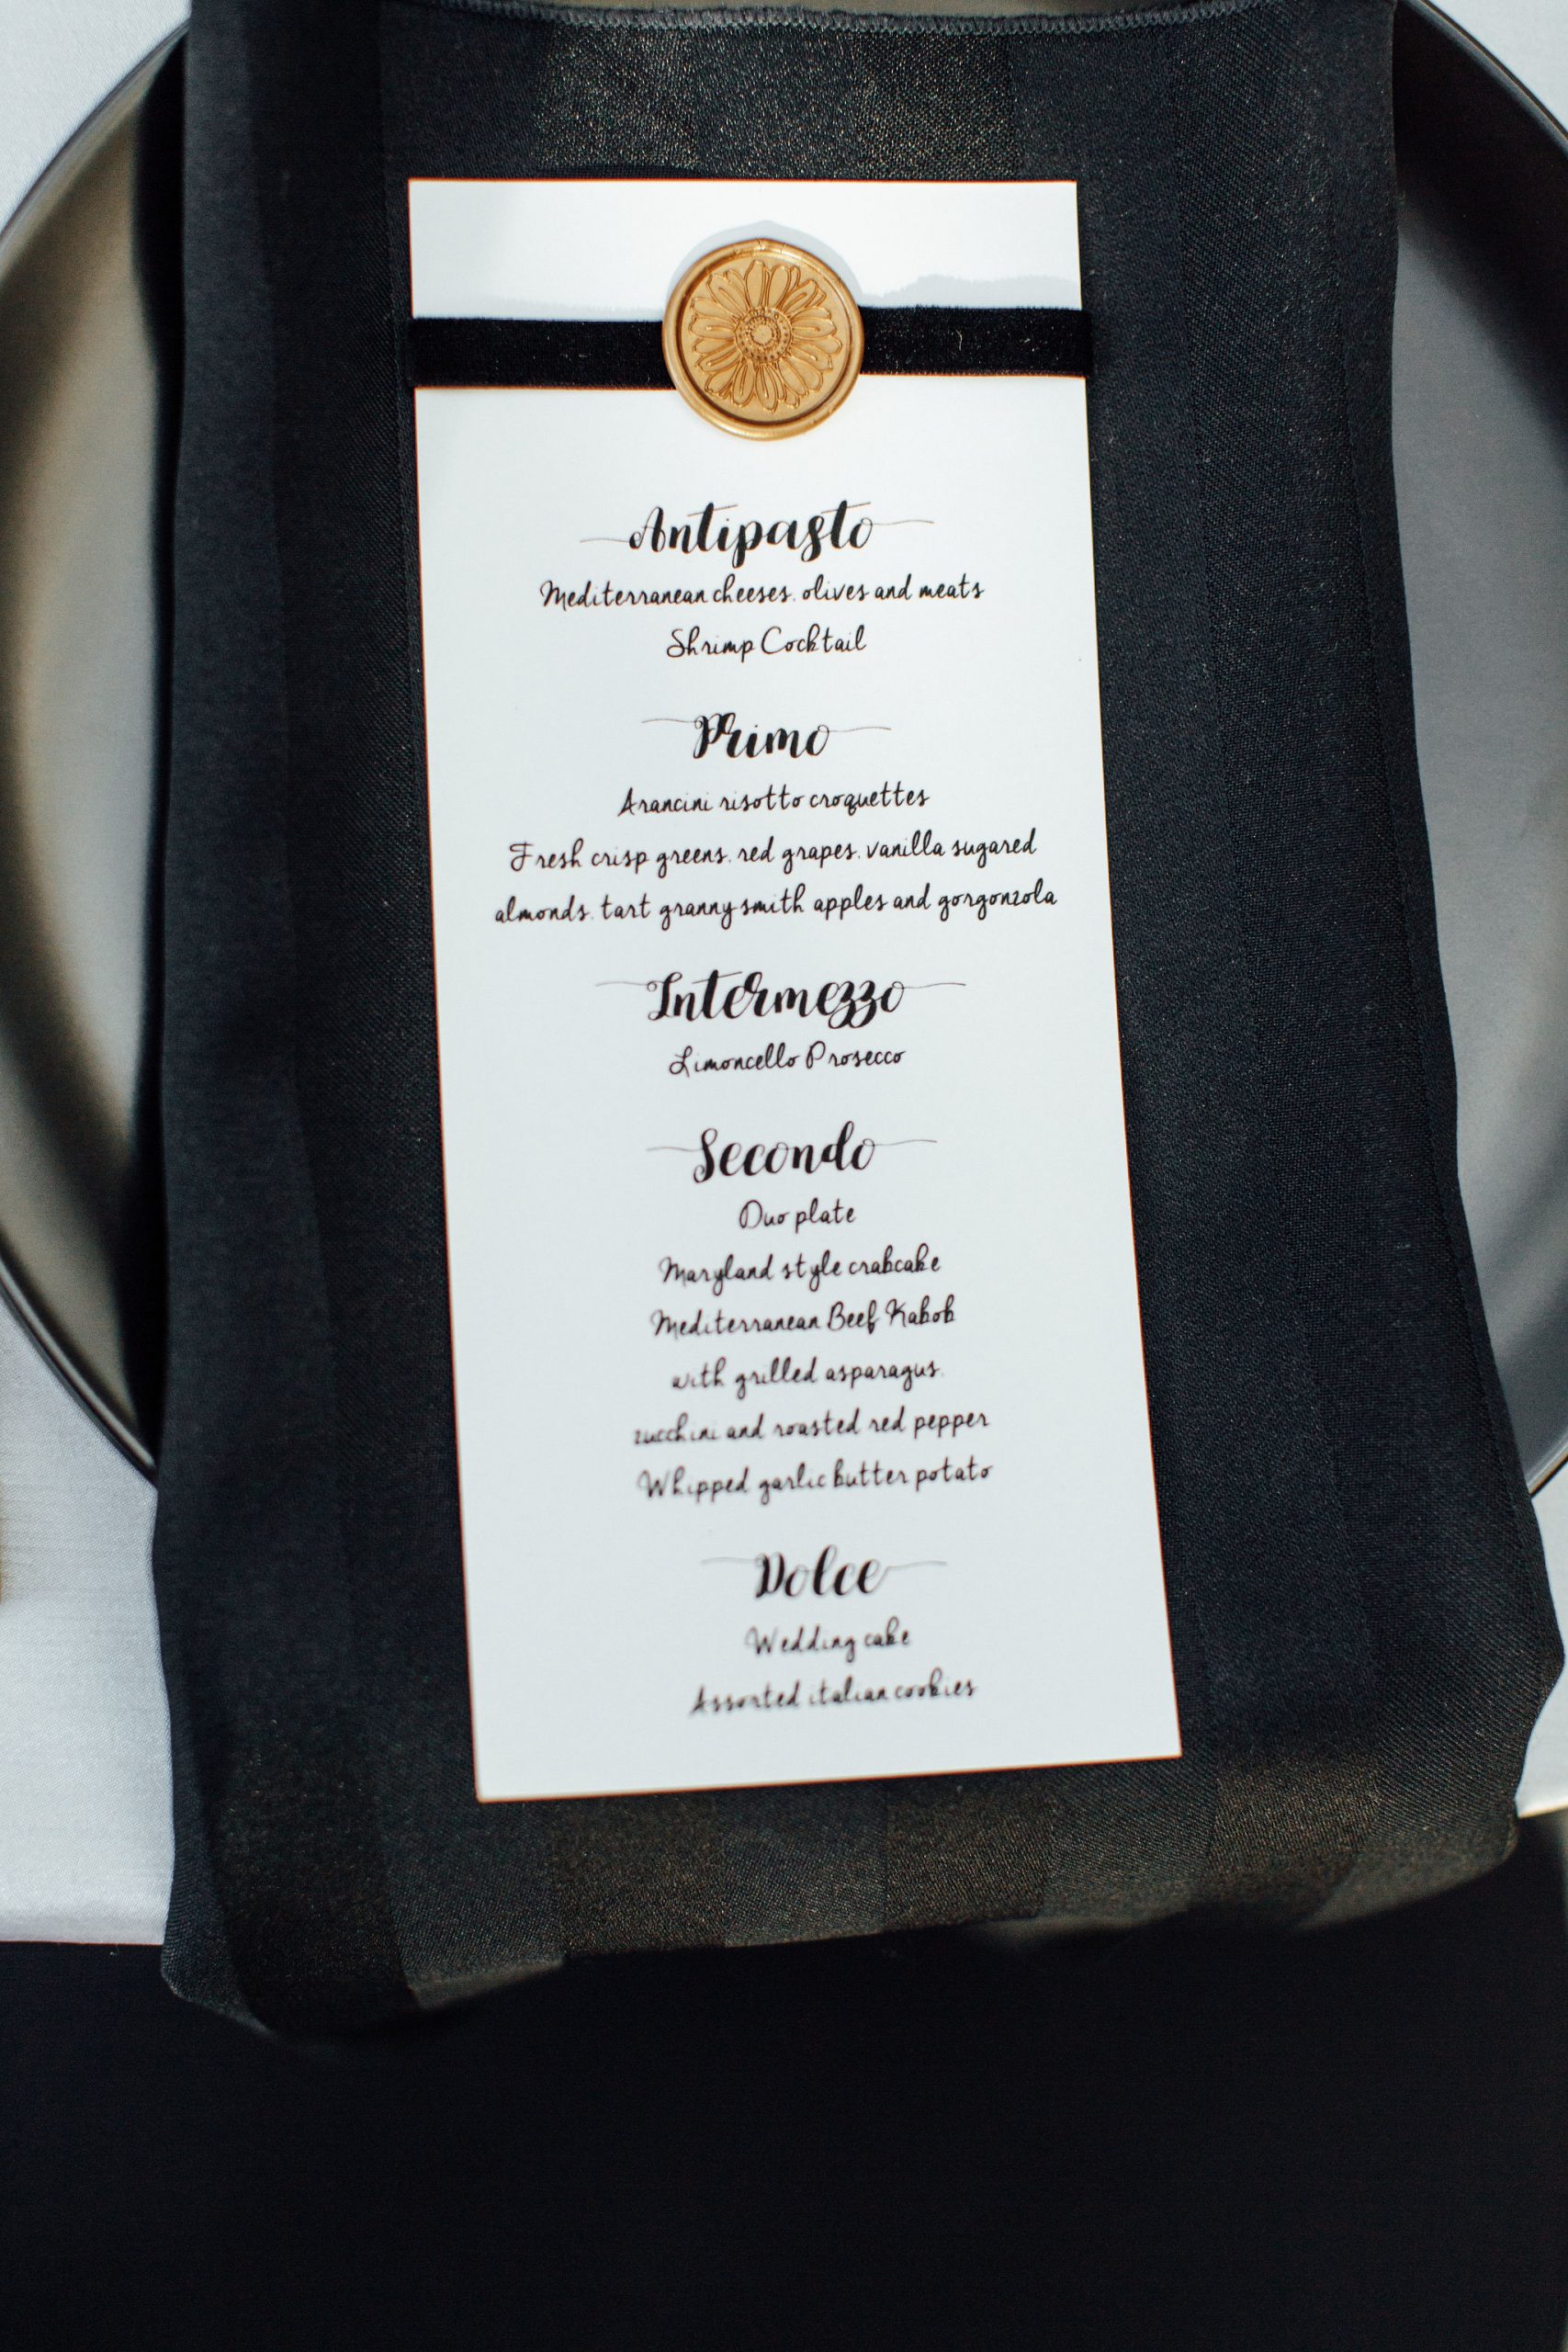 Antipasto
Mediterranean cheeses, olives and meats
Shrimp Cocktail
Primo
Arancini risotto croquettes
Fresh crisp greens, red grapes, vanilla sugared
almonds, tart granny smith apples and gorgonzola
Intermezzo
Limoncello Prosecco
Secondo
Duo plate
Maryland style crabcake
Mediterranean Beef Kabob
with grilled asparagus,
zucchini and roasted red pepper
Whipped garlic butter potato
Dolce
Wedding cake
Assorted italian cookies